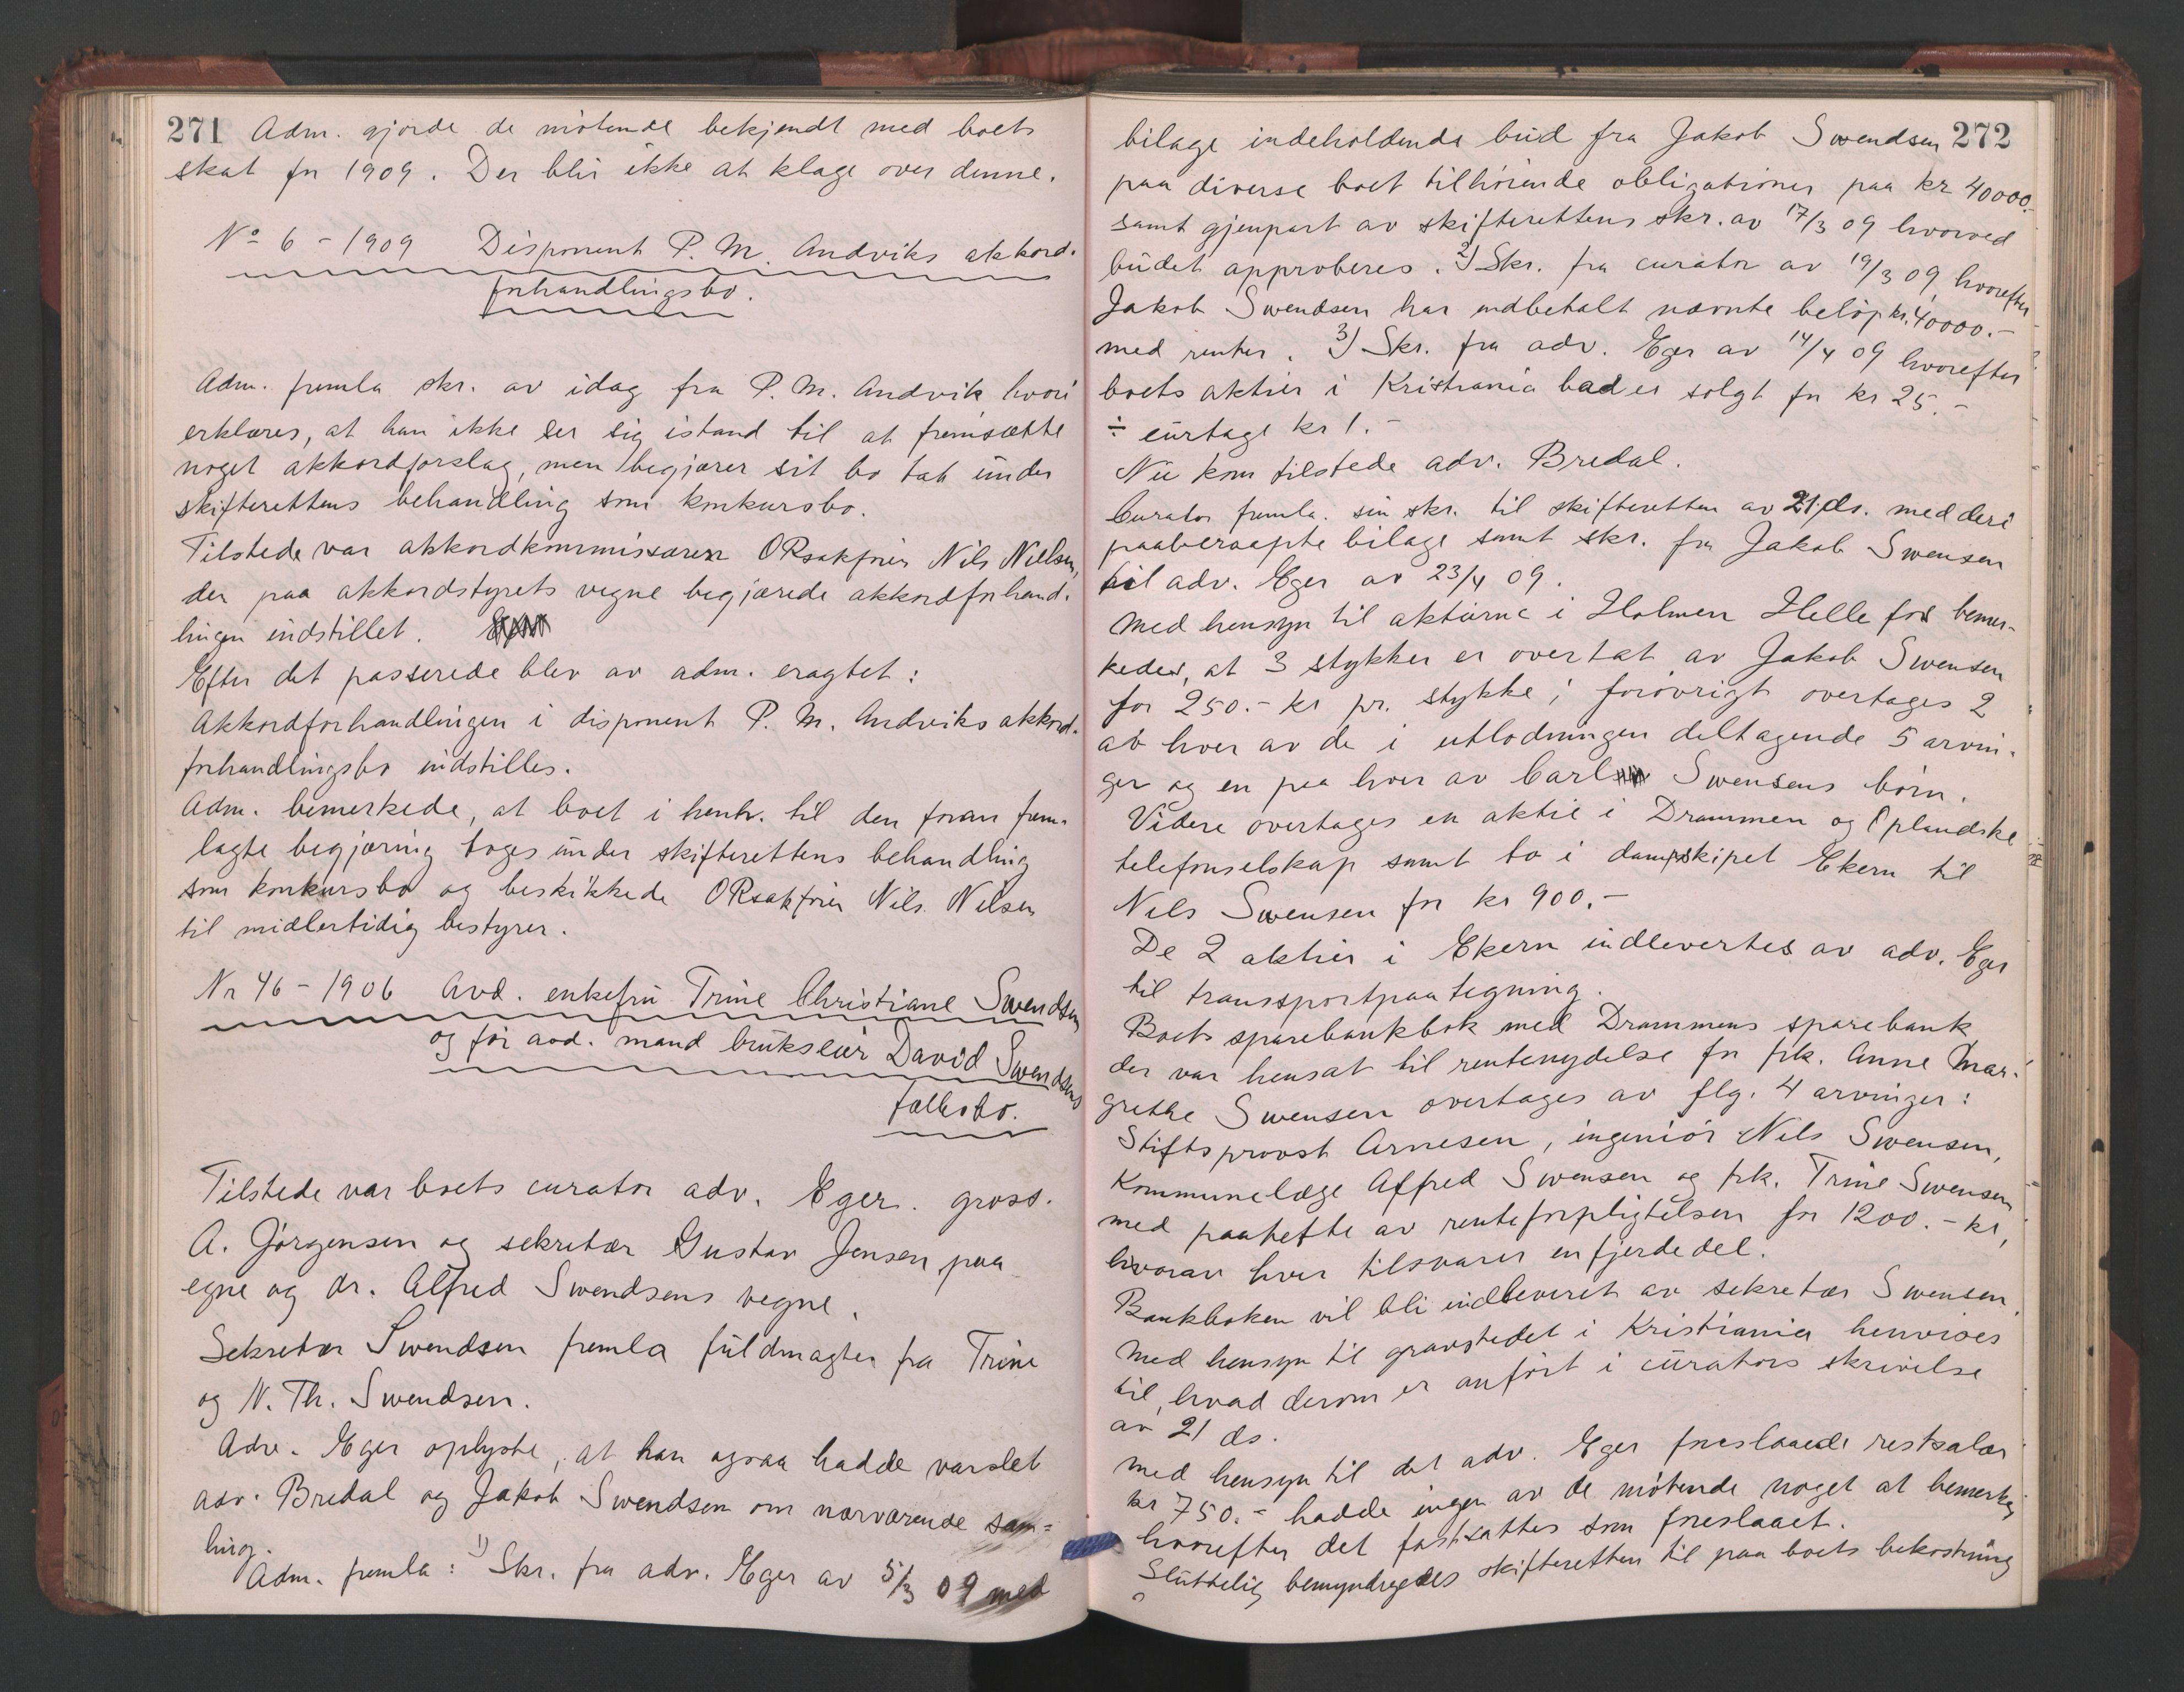 271 Adm. gjorde de mötende bekjendt med boets
skat for 1909. Der blir ikke at klage over denne.
No 6 - 1909 Disponent P. M. Andviks akkord-
forhandlingsbo.
Adm. fremla skr. av idag fra P. M. Andvik hvori
erklæres, at han ikke ser sig istand til at fremsætte
noget akkordforslag, men begjærer sit bo tat under
skifterettens behandling som konkursbo.
Tilstede var akkordkommissæren ORsakfører Nils Nielsen,
der paa akkordstyrets vegne begjærede akkordforhand-
lingen indstillet.
Efter det passerede blev av adm. eragtet:
Akkordforhandlingen i disponent P. M. Andviks akkord-
forhandlingsbo indstilles.
Adm. bemerkede, at boet i henh. til den foran frem-
lagte begjæring toges under skifterettens behandling
som konkursbo og beskikkede ORsakfører Nils Nilsen
til midlertidig bestyrer.
Nr 46 - 1906 Avd. enkefru Trine Christiane Swendsen
og før avd. mand brukseier David Swendsens
fællesbo.
Tilstede var boets curator adv. Eger. gross.
A. Jörgensen og sekretær Gustav Jensen paa
egne og dr. Alfred Swendsens vegne.
Sekretær Swendsen fremla fuldmagter fra Trine
og N. Th. Swendsen.
Adv. Eger oplyste, at han ogsaa hadde varslet
adv. Bredal og Jakob Swendsen om nærværende sam=
ling.
Adm. fremla: 1) Skr. fra adv. Eger av 5/3 09 med
bilage indeholdende bud fra Jakob Swendsen 272
paa diverse boet tilhörende obligationer paa kr 40000.-
samt gjenpart av skifterettens skr. av 17/3 09 hvorved
budet approberes. 2) Skr. fra curator av 19/3 09, hvorefter
Jakob Swendsen har indbetalt nævnte belöp kr. 40000.-
med renter. 3) Skr. fra adv. Eger av 14/4 09 hvorefter
boets aktier i Kristiania bad er solgt for kr 25.-
÷ curtage kr 1.-
Nu kom tilstede adv. Bredal.
Curator fremla. sin skr. til skifteretten av 21 ds. med deri
paaberaapte bilage samt skr. fra Jakob Swensen
til adv. Eger av 23/4 09.
Med hensyn til aktierne i Holmen Helle fos bemer-
kedes, at 3 stykker er overtat av Jakob Swensen
for 250.- kr pr. stykke; forövrigt overtages 2
av hver av de i utlodningen deltagende 5 arvin-
ger og en paa hver av Carl Swensens börn.
Videre overtages en aktie i Drammen og Oplandske
telefonselskap samt to i dampskipet Ekern til
Nils Swensen for kr 900.-
De 2 aktier i Ekern indlevertes av adv. Eger
til transportpaategning.
Boets sparebankbok med Drammens sparebank
der var hensat til rentenydelse for frk. Anne Mar-
grethe Swensen overtages av flg. 4 arvinger:
Stiftsprovst Arnesen, ingeniör Nils Swensen,
Kommunelæge Alfred Swensen og frk. Trine Swensen
med paahefte av renteforpligtelsen for 1200.- kr,
hvorav hver tilsvarer en fjerdedel.
Bankboken vil bli indleveret av sekretær Swensen.
Med hensyn til gravstedet i Kristiania henvises
til, hvad derom er anfört i curators skrivelse
av 21 ds.
Med hensyn til det adv. Eger foreslaaede restsalær
kr 750.- hadde ingen av de mötende noget at bemerke,
hvorefter det fastsattes som foreslaaet.
Sluttelig bemyndigedes skifteretten til paa boets bekostning